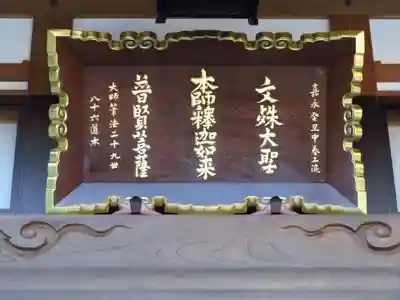 嘉永癸丑中春上浣
文殊大聖
本師釋迦如来
普賢菩薩
大師筆法二十九世
八十六道本